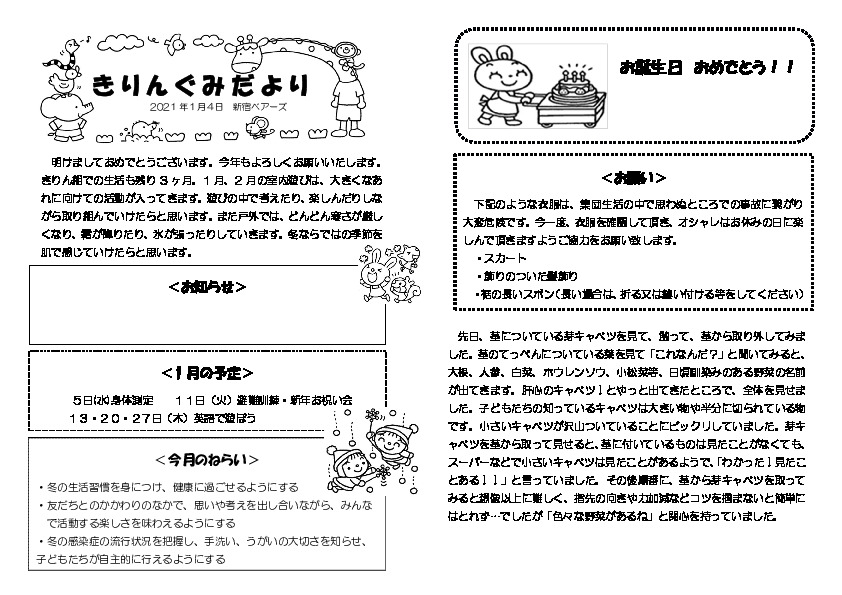 きりんぐみだより
2021年1月4日　新宿ベアーズ
明けましておめでとうございます。今年もよろしくお願いいたします。
きりん組での生活も残り3ヶ月。1月、2月の室内遊びは、大きくなあ
れに向けての活動が入ってきます。遊びの中で考えたり、楽しんだりしな
がら取り組んでいけたらと思います。また戸外では、どんどん寒さが厳し
くなり、霜が降りたり、氷が張ったりしていきます。冬ならではの季節を
肌で感じていけたらと思います。
＜お知らせ＞
＜1月の予定＞
5日(水)身体測定　11日（火）避難訓練・新年お祝い会
13・20・27日（木）英語で遊ぼう
＜今月のねらい＞
・冬の生活習慣を身につけ、健康に過ごせるようにする
・友だちとのかかわりのなかで、思いや考えを出し合いながら、みんな
で活動する楽しさを味わえるようにする
・冬の感染症の流行状況を把握し、手洗い、うがいの大切さを知らせ、
子どもたちが自主的に行えるようにする
お誕生日 おめでとう！！
＜お願い＞
下記のような衣服は、集団生活の中で思わぬところでの事故に繋がり
大変危険です。今一度、衣服を確認して頂き、オシャレはお休みの日に楽
しんで頂きますようご協力をお願い致します。
・スカート
・飾りのついた髪飾り
・裾の長いズボン（長い場合は、折る又は縫い付ける等をしてください）
先日、茎についている芽キャベツを見て、触って、茎から取り外してみま
した。茎のてっぺんについている葉を見て「これなんだ？」と聞いてみると、
大根、人参、白菜、ホウレンソウ、小松菜等、日頃馴染みのある野菜の名前
が出てきます。肝心のキャベツ！とやっと出てきたところで、全体を見せま
した。子どもたちの知っているキャベツは大きい物や半分に切られている物
です。小さいキャベツが沢山ついていることにビックリしていました。芽キ
ャベツを茎から取って見せると、茎に付いているものは見たことがなくても、
スーパーなどで小さいキャベツは見たことがあるようで、「わかった！見たこ
とある！！」と言っていました。その後順番に、茎から芽キャベツを取って
みると想像以上に難しく、指先の向きや力加減などコツを掴まないと簡単に
はとれず…でしたが「色々な野菜があるね」と関心を持っていました。